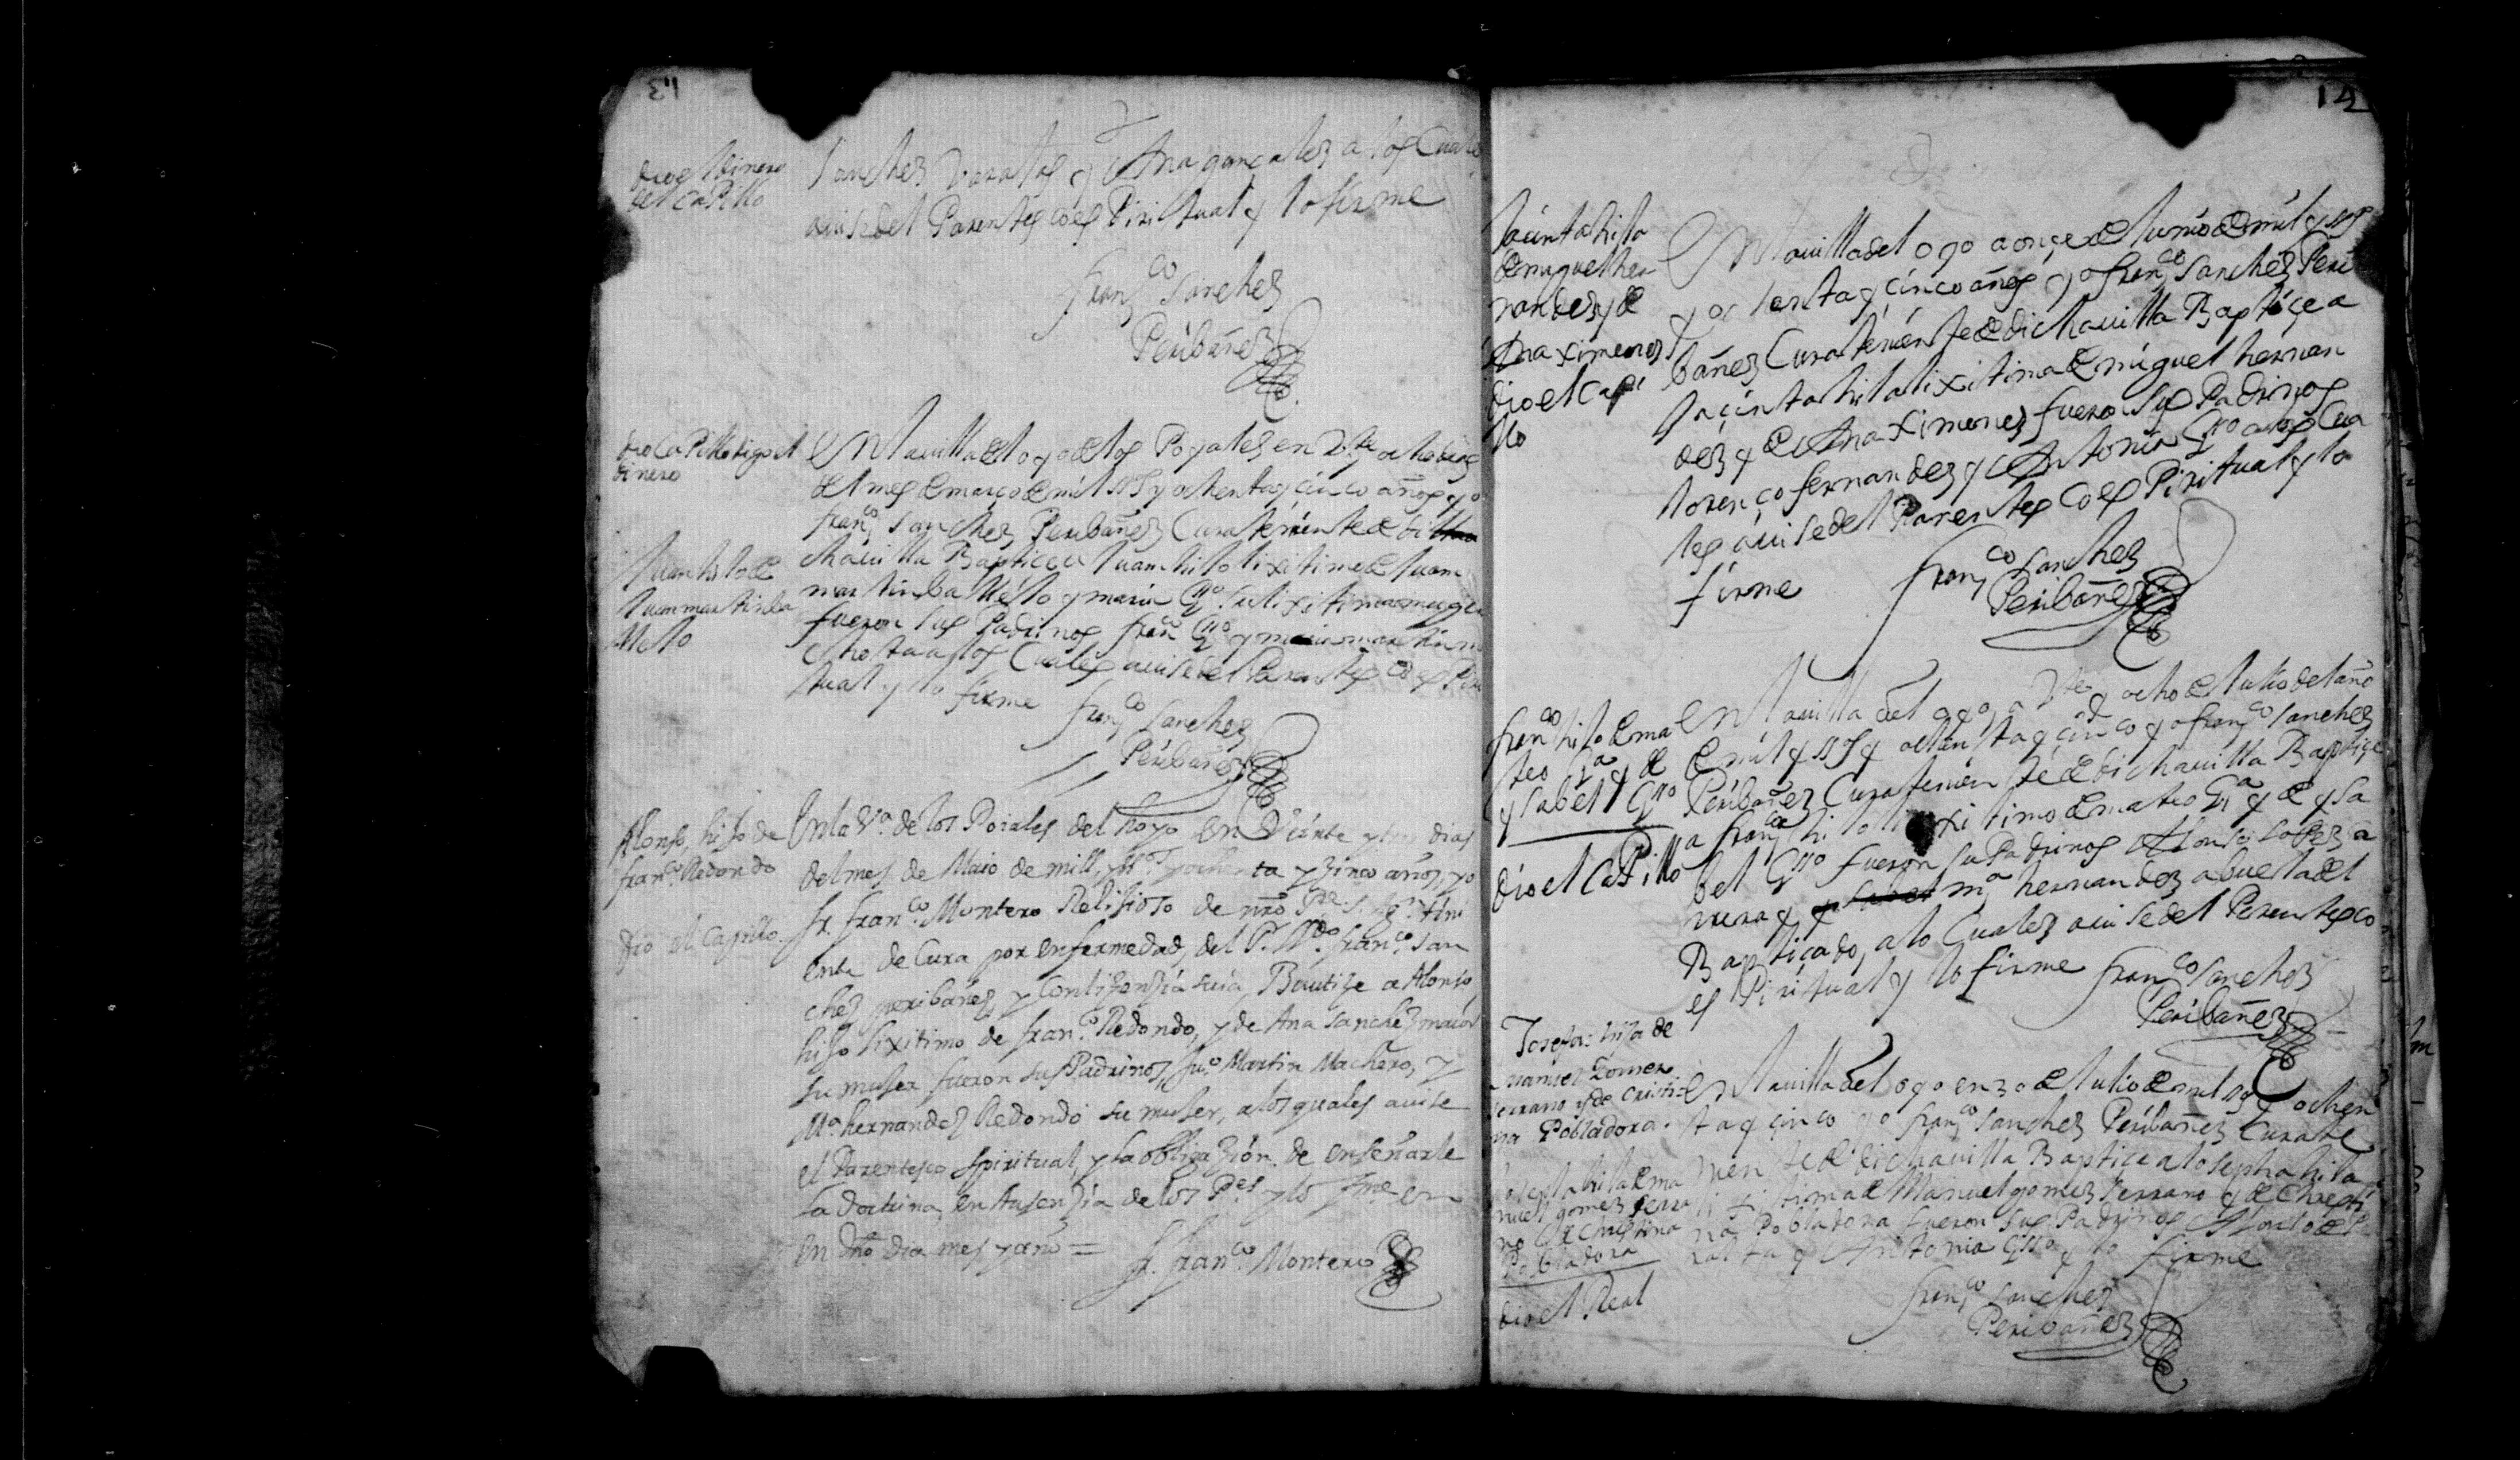 dio el dinero
del caPillo
Sanchez Varatos y Ana gonçalez a los Cuale
auise del Parentes co es Piritual y lo firme
fran.co Sanchez
Peribañez
dio caPillo digo el
dinero
Juan hijo de
Juan martin ba
llello
EN la uilla del oyo de los Poyales en Vte. y ocho dias
del mes de março de mil ssos y ochenta y cinco años yo
fran.co Sanchez Peribañez Cura teniente de di
cha uilla Baptice a Juan hijo lixitimo de Juan
martin ba llello y maria Gllo su lixitima muger
fueron sus Padrinos fran.co Gllo y maria martin
a los Cuales auise del Parentes co es Piri
tual y lo firme
fran.co Sanchez
Peribañez
Alonso, hijo de
fran.co Redondo
dio el Capillo.
En la Va. de los Poiales del hoyo en Veinte y tres dias
del mes de Maio de mill, y ssos y ochenta y zinco años, yo
fr. fran.co Montero Relijioso de nro Pe. S. Ag.n tini
ente de Cura por enfermedad, del P. Ldo fran.co San
chez peribañez, y Con lizenzia suia, Bautize a Alonso,
hijo lixitimo de fran.co Redondo, y de Ana Sanchez maior
su mujer, fueron sus Padrinos, Ju.o Martin Machero, y
Ma. hernandez Redondo su mujer, a los quales auise
el Parentesco spiritual, y la obligazion de enseñarle
la doctrina, en Ausenzia de los Pes y lo firme en
en dho dia mes y año =
fr. fran.co Montero
14
Jacinta hija
de miguel her
nandez y de
Ana ximenez
dio el capi
llo
EN la uilla del oyo a onçe de Junio de mil y ssos
y ochenta y cinco años yo fran.co Sanchez Peri
bañez Cura teniente de dicha uilla Baptiçe a
Jacinta hija lixitima de miguel hernan
dez y de Ana Ximenez fueron sus Padrinos
lorenço fernandez y Antonia Gllo a los Cua
les auise del Parentes Co es Piritual y lo
firme
fran.co Sanchez
Peribañez
fran.co hijo de ma
teo Ga y de
ysabel Gllo
dio el CaPillo
EN la uilla del oyo a Vte. y ocho de Julio del año
de mil y ssos y ochenta y cinco yo fran.co Sanchez
Peribañez Cura teniente de dicha uilla Baptiçe
a fran.co hijo lixitimo de mateo Ga y de ysa
bel Gllo fueron su Padrinos Alonso loPez a
y ma hernandez abuela del
Baptiçado, a lo Cuales auise del Parentesco
es Piritual y lo firme
fran.co Sanchez
Peribañez
Josefa: hija de
manuel Gomez
serrano y de Cristi
na Pobladora.
Josepha hija de ma
nuel gomez serra
no de Christina
Pobladora
dio el Real
EN la uilla del oyo en 30 de Julio de mil ssos y ochen
ta y çinco yo fran.co Sanchez Peribañez Cura te
nien te de dicha uilla Baptiçe a Josepha hija
li xi tima de Manuel gomez serrano y de Christi
na Pobladora fueron sus Padrinos Alonso de Pe
ralta y Antonia Gllo y lo firme
fran.co Sanchez
Peribañez